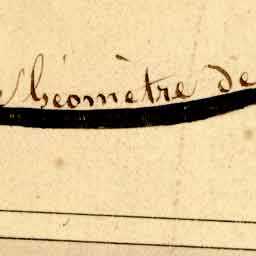 Géomètre de